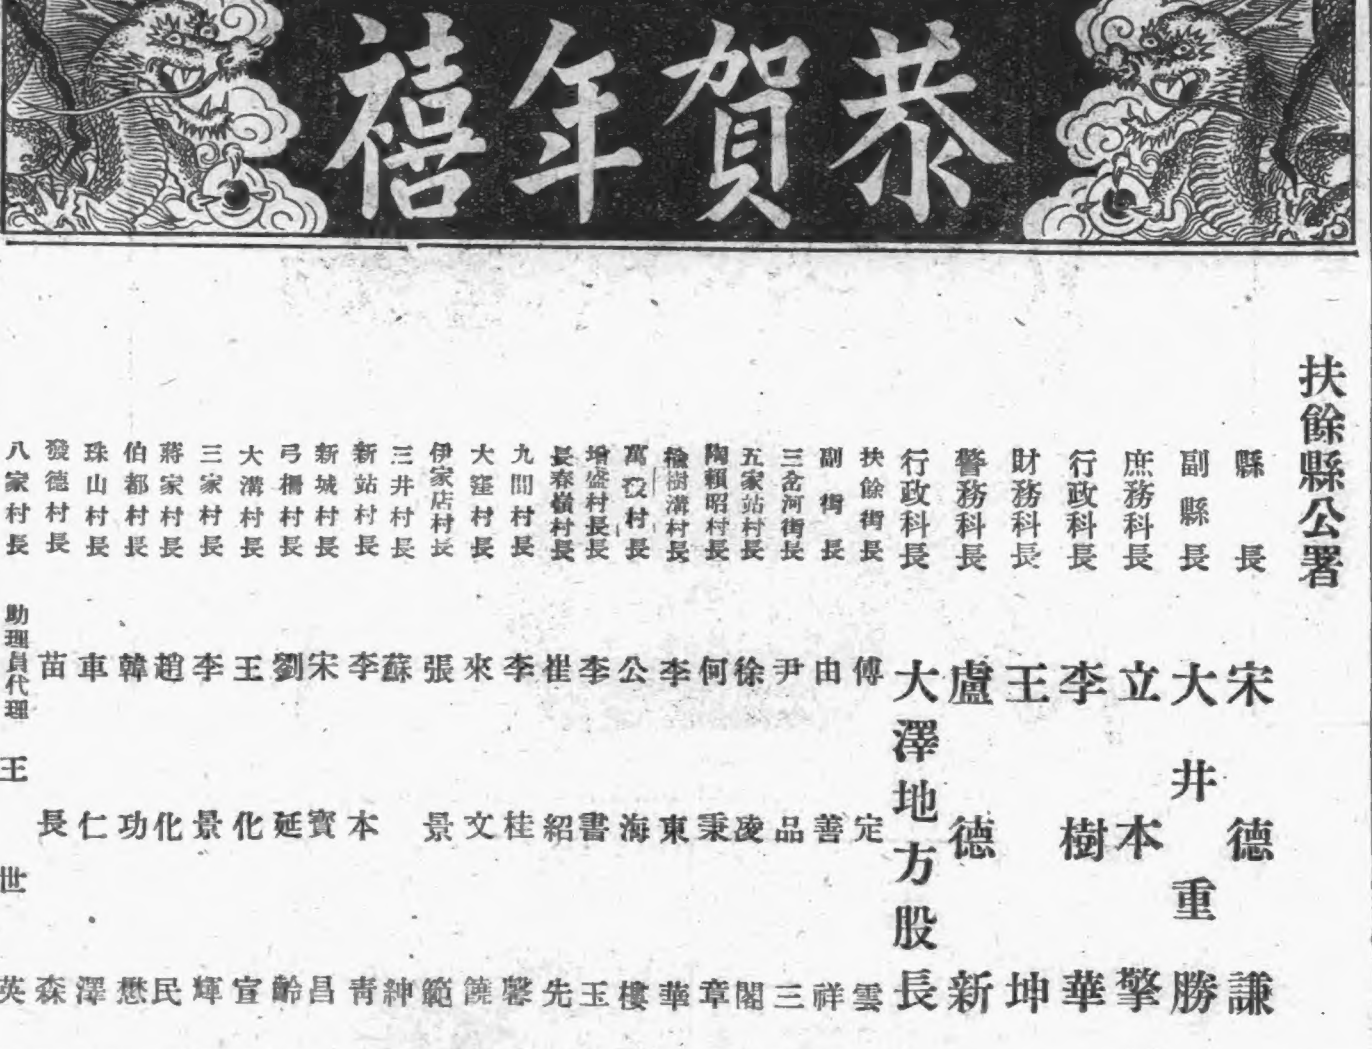 恭賀年禧
扶餘縣公署
縣長 宋德謙
副縣長 大井重勝
庶務科長 立本擎
行政科長 李樹華
財務科長 王坤
警務科長 盧德新
行政科長 大澤地方股長
扶餘街長 傅定雲
副街長 由善祥
三岔河街長 尹品三
五家站村長 徐凌閣
陶賴昭村長 何秉章
楡樹溝村長 李東華
萬發村長 公海樓
增盛村長 李書玉
長春嶺村長 崔紹先
九間村長 李桂馨
大窪村長 來文饒
伊家店村長 張景範
三井村長 蘇紳
新站村長 李本靑
新城村長 宋寶昌
弓棚村長 劉延齡
大溝村長 王化宣
三家村長 李景輝
蔣家村長 趙化民
伯都村長 韓功懋
珠山村長 車仁澤
發德村長 苗長森
八家村長 助理員代理 王世英